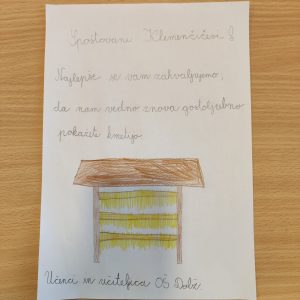 Spoštovani Klemenčičevi!
Najlepše se vam zahvaljujemo,
da nam vedno znova gostoljubno
pokažete kmetijo.
Učenci in učiteljica OŠ Dolž.